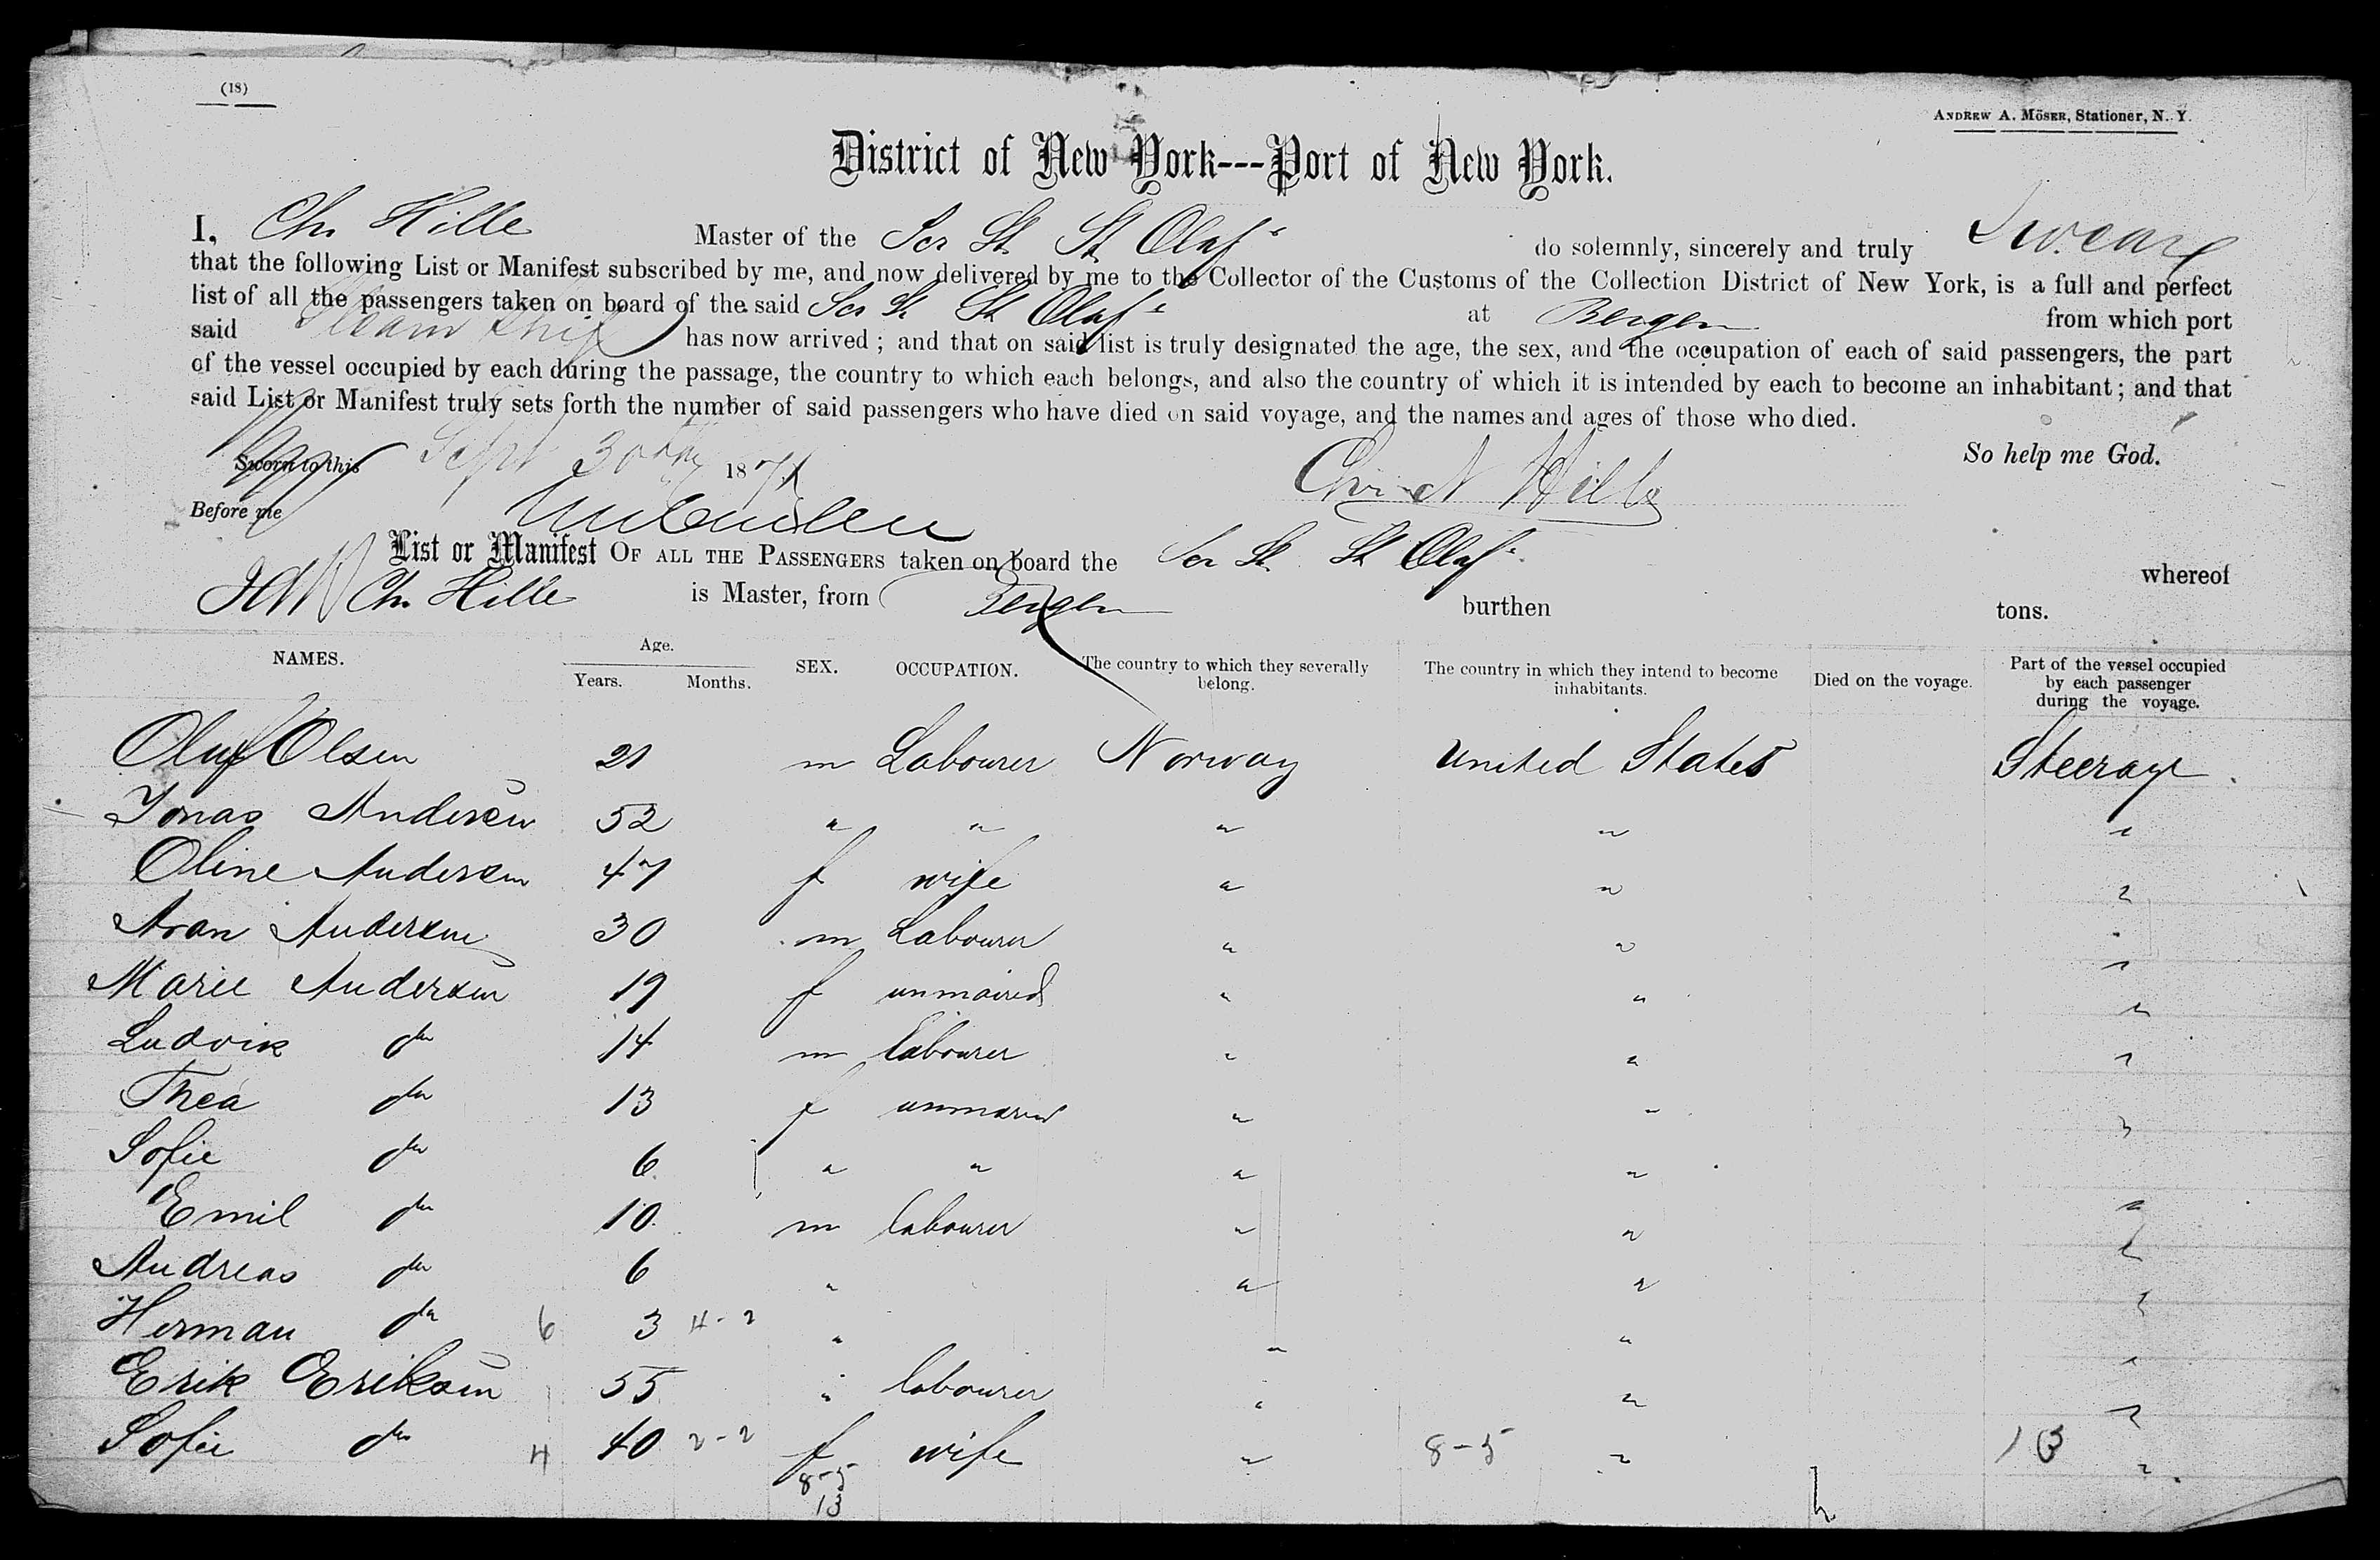 (18)
ANDREW A. MÖSER, Stationer, N. Y.
District of New York---Port of New York.
I, Chr Hille Master of the Scr St St Olaf do solemnly, sincerely and truly Swear
that the following List or Manifest subscribed by me, and now delivered by me to the Collector of the Customs of the Collection District of New York, is a full and perfect
list of all the passengers taken on board of the said Scr St St Olaf at Bergen from which port
said Steam Ship has now arrived ; and that on said list is truly designated the age, the sex, and the occupation of each of said passengers, the part
of the vessel occupied by each during the passage, the country to which each belongs, and also the country of which it is intended by each to become an inhabitant ; and that
said List or Manifest truly sets forth the number of said passengers who have died on said voyage, and the names and ages of those who died.
So help me God.
Sworn to this Sept 30th 1871
Chr N Hille
Before me
List or Manifest OF ALL THE PASSENGERS taken on board the Scr St St Olaf whereof
Chr Hille is Master, from Bergen burthen tons.
NAMES. Age. Years. Months. SEX. OCCUPATION. The country to which they severally belong. The country in which they intend to become inhabitants. Died on the voyage. Part of the vessel occupied by each passenger during the voyage.
Oluf Olsen 21 m Labourer Norway United States Steerage
Jonas Andersen 52 " " " " "
Oline Andersen 47 f wife " " "
Aron Andersen 30 m Labourer " " "
Marie Andersen 19 f unmairied " " "
Ludvik do 14 m labourer " " "
Thea do 13 f unmaried " " "
Sofie do 6 " " " " "
Emil do 10 m labourer " " "
Andreas do 6 " " " "
Herman do 6 3 4-2 " " " "
Erik Eriksen 55 " labourer " " "
Sofie do 4 40 2-2 f wife " 8-5 " 13 "
8-5
13